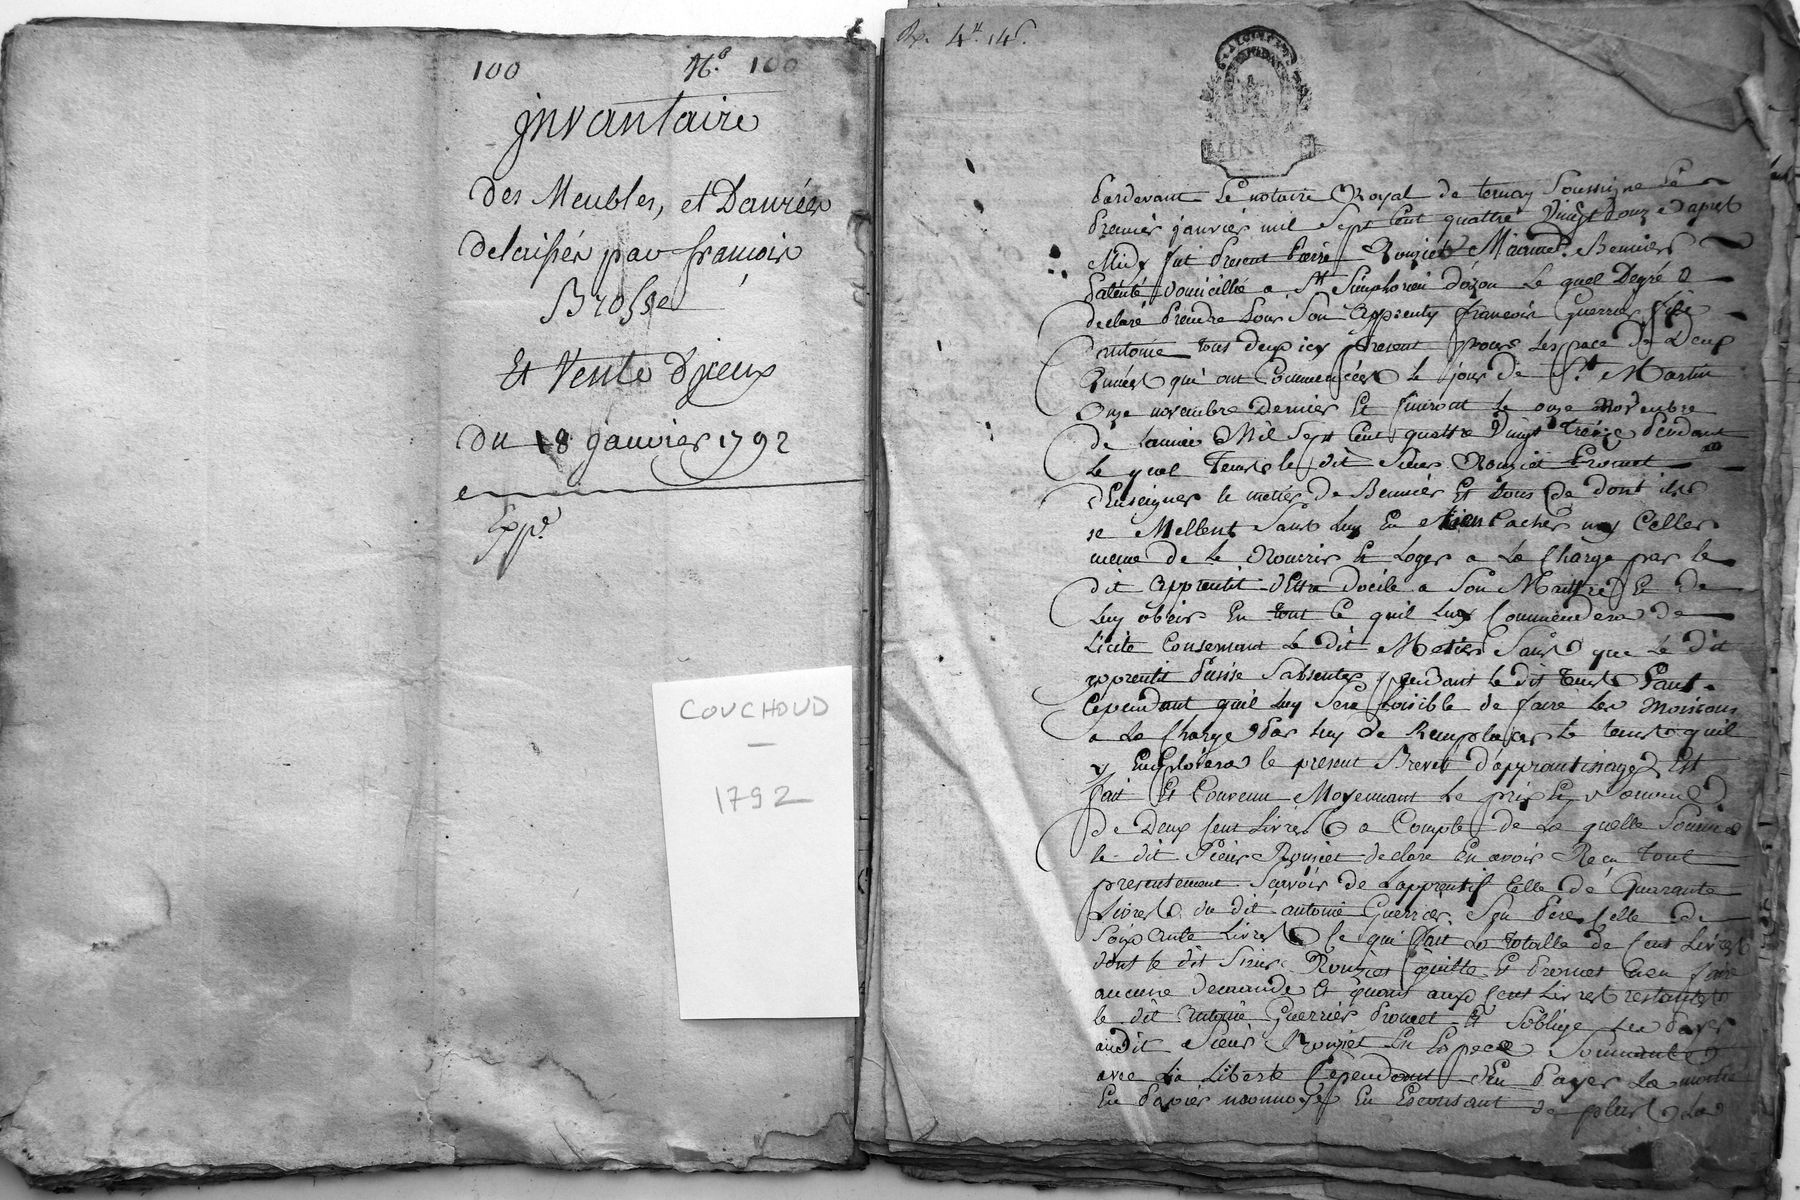 100 N.o 100
invantaire
des Meubles, et Danrées
delaissés par francois
Brosse
Et Vente d'jceux
du 18 janvier 1792
Exp.e
COUCHOUD
1792
R. 4tt. 14s.
Pardevant Le notaire Royal de ternay Soussigné Le
Premier janvier mil Sept Cent quattre Vingt Douze apres
Midy fut Present pierre Rouziet Marined. Bennier
Patenté domicillié a St. Simphorien d'ozon Le quel Degré a
declaré Prendre Pour Son apprenty francois Guerrier fils
d'antoine tous deux icy present pour Lespace de Deux
Années qui ont Commencées le jour de St. Martin
Onze novembre Dernier Et finiront le onze novembre
de lannée Mil Sept Cent quattre Vingt Treize Pendant
Le quel Tems le dit Sieur Rouziet Promet
d'Enseigner le metier de Bennier Et tous Ce dont ils
se Mellent Sans luy En Rien Cacher ny Celler
meme de le Nourrir Et Loger a La Charge par le
dit apprentit d'Etre docile a Son Maittre Et de
Luy obeir En tout Ce quil luy Commendera de
Licite Consernant Le dit Metier Sans que Le dit
apprentit Puisse Sabsenter pendant le dit tems Sans
Cependant quil luy Sera Loisible de faire Les Moissons
a La Charge Par luy de Remplacer le tems quil
y Emploiera le present Brevet d'apprantissage Est
fait Et Convenu Moyennant Le prix Et Somme
de Deux Cent Livres a Compte de La quelle Somme
le dit Sieur Rouziet declare En avoir Reçu tout
presentement Sçavoir de Lapprentif Celle de Quarante
Livres du dit antoine Guerrier Son Pere Celle de
Soixante Livres Ce qui fait La totalle de Cent Livres
dont le dit Sieur Rouziet quitte Et Promet nen faire
aucune demande Et quant aux Cent Livres restantes
le dit Antoine Guerrier Promet Et Soblige les Payer
audit Sieur Rouziet En Espece Sonnante
avec La Liberté Cependant d'En Payer La moitié
En Papier monnoye En Escontant de plus La